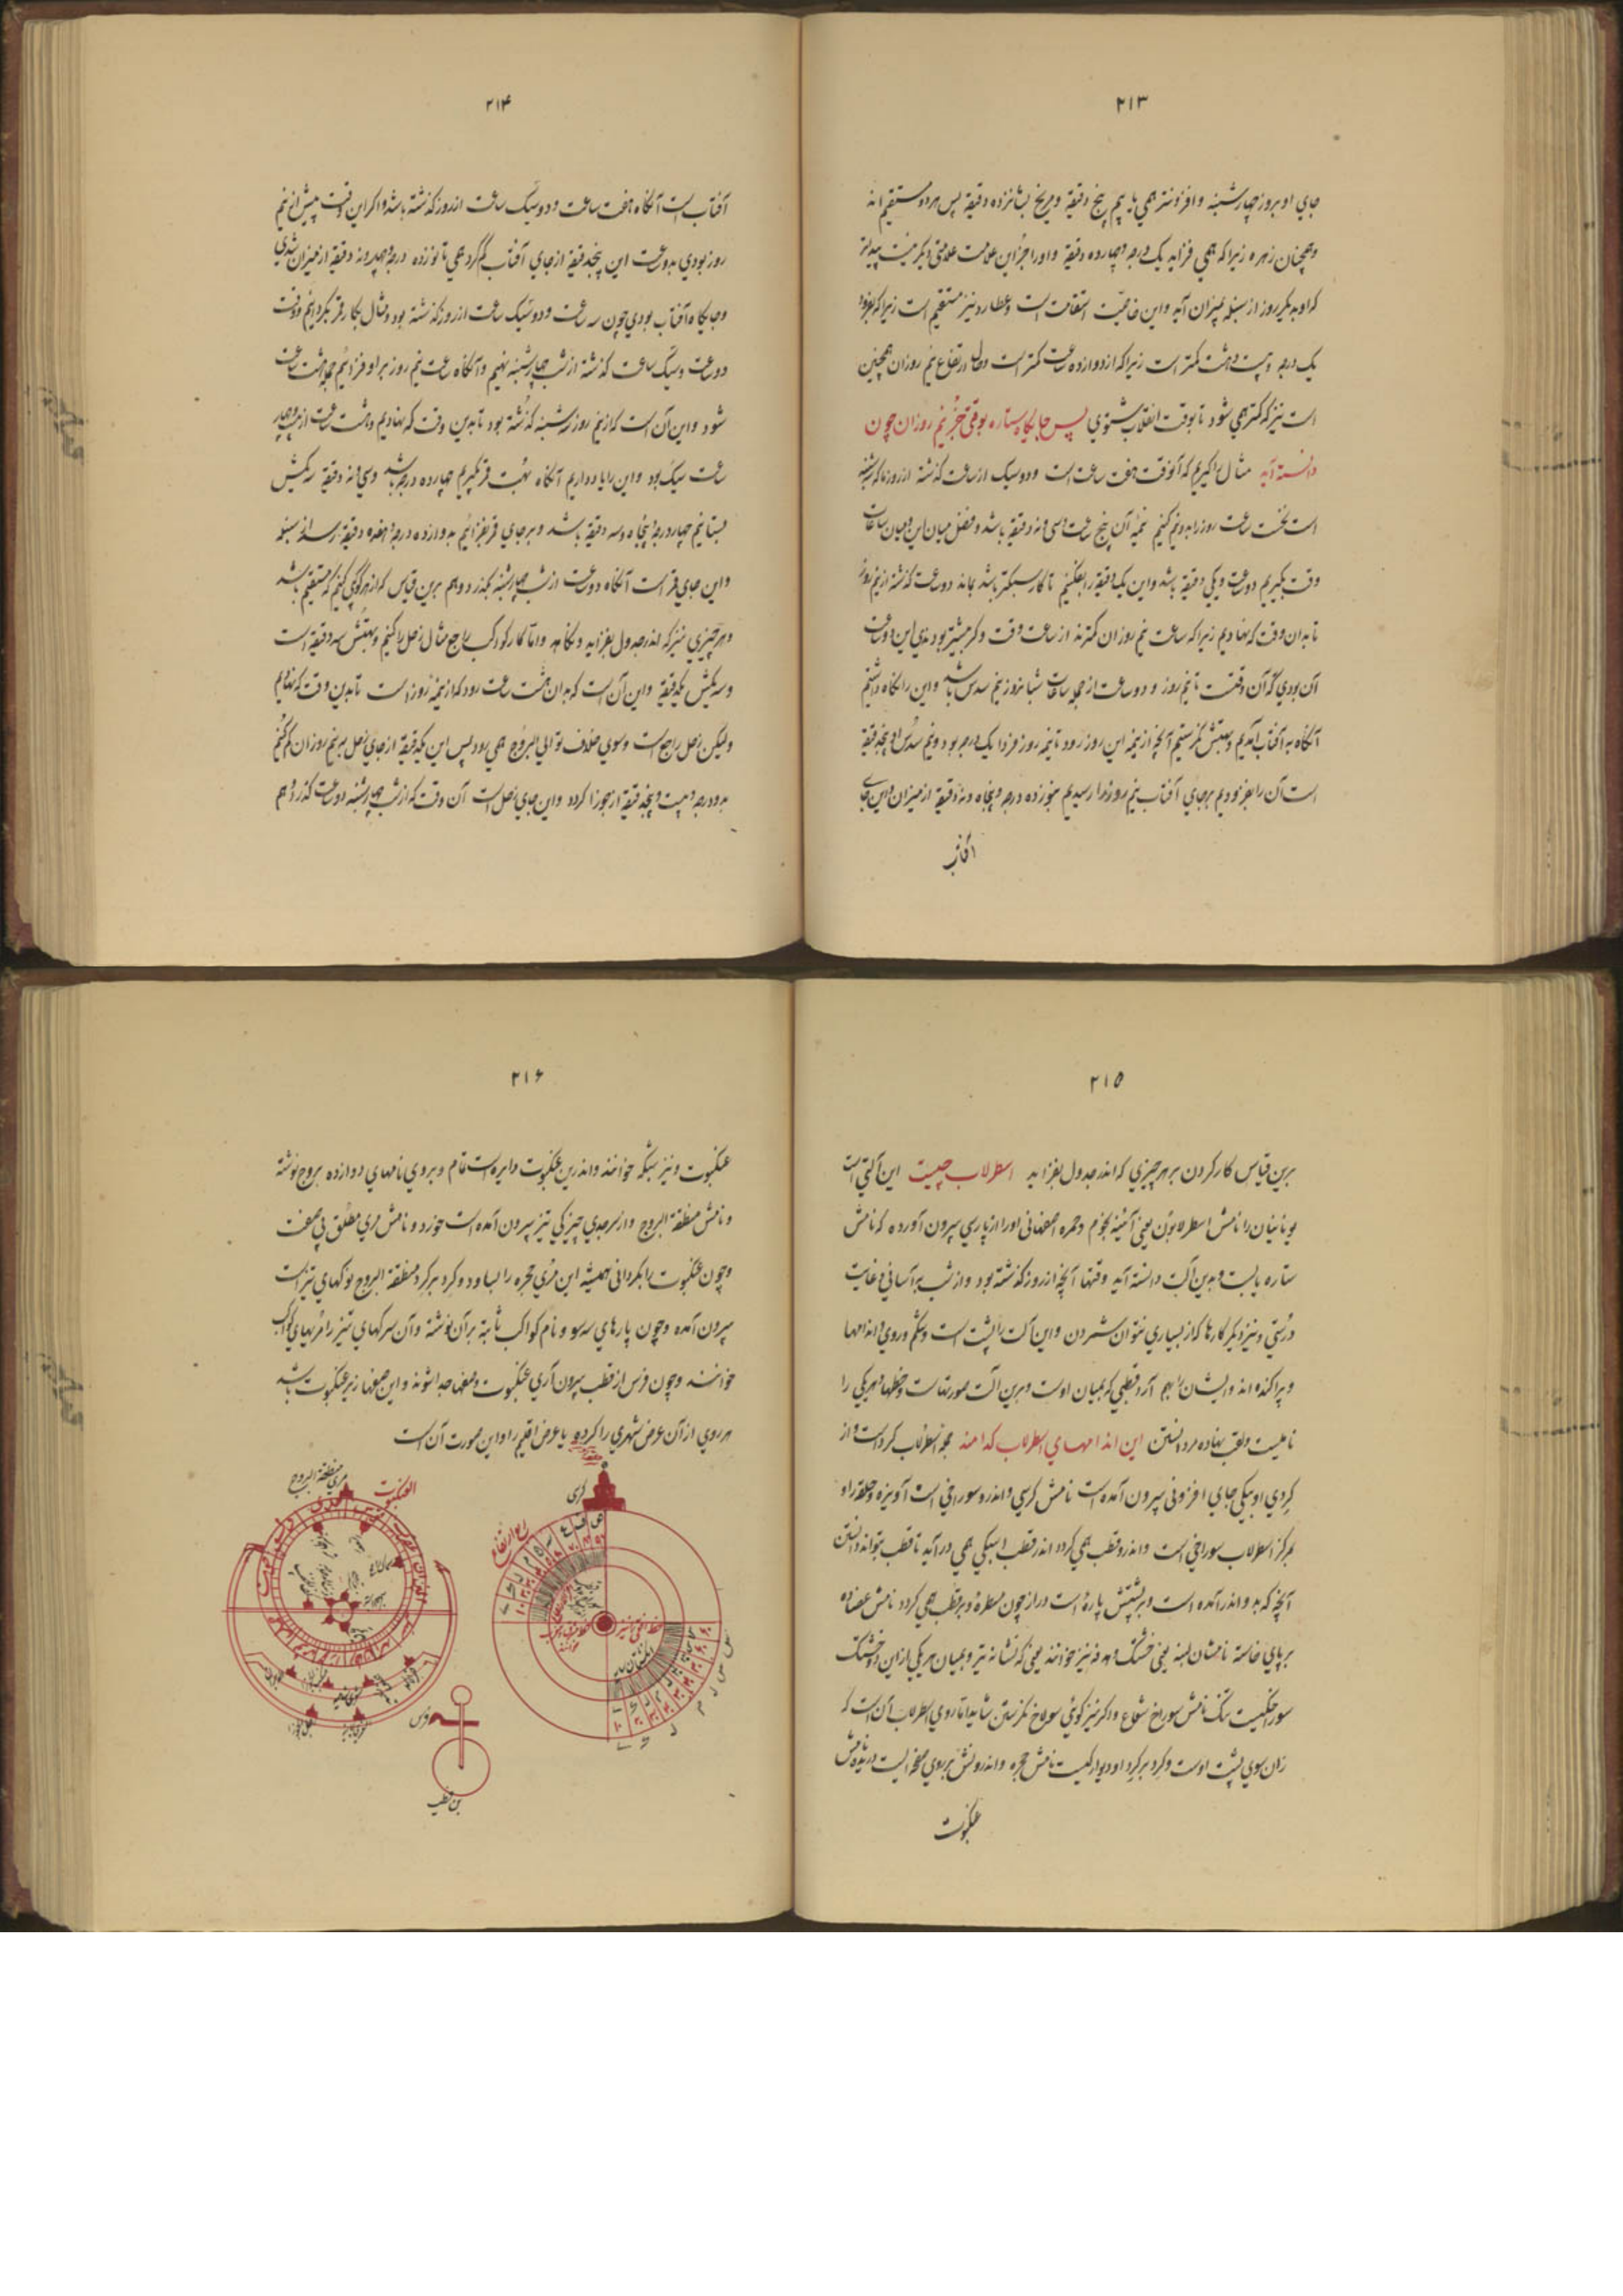 ۲۱۳
جای او بروز چهارشنبه و افزونتر همی یابیم پنج دقیقه و مریخ بشانزده دقیقه پس هر دو مستقیم اند
و همچنان زهره زیرا که همی فزاید یک درجه و چهارده دقیقه و او را جز این علامت علامتی دیگر نیست پیداتر
که او بدیگر روز از سنبله بمیزان آید و این خاصیت استقامت است و عطارد نیز مستقیم است زیرا که بفزود
یک درجه و بیست و هشت کمتر است زیرا که از دوازده ساعت کمتر است و اما ارتفاع نیم روزان همچنین
است نیز که کمتر همی شود تا بوقت انقلاب شتوی پس جایگاه ستاره بوقتی جز نیم روزان چون
دانسته آید مثال را گیریم که آنوقت هفت ساعت است و دو سیک از ساعت گذشته از روز ما که سه شنبه
است نخست ساعت روز را بدو نیم کنیم نیمه آن پنج ساعت و سی و نه دقیقه باشد و فضل میان این و میان ساعات
وقت بگیریم دو ساعت و یکی دقیقه باشد و این یک دقیقه را بفکنیم تا کار سبکتر باشد بماند دو ساعت گذشته از نیم روز
تا بدان وقت که نهادیم زیرا که ساعت نیم روزان کمترند از ساعت وقت و گر بیشتر بودندی این دو ساعت
آن بودی که آن وقتست تا نیم روز و دو ساعت از جمله ساعات شبانروز نیم سدس باشد و این را نگاه داشتیم
آنگاه به آفتاب آمدیم و بهتش نگرستیم آنچه از نیمه این روز رود تا نیمه روز فردا یک درجه بود و نیم سدس او پنجدقیقه
است آن را بفزودیم بر جای آفتاب نیم روز فردا رسیدیم بنوزده درجه و پنجاه و نه دقیقه از میزان و این جای
آفتاب
۲۱۴
آفتاب است آنگاه هفت ساعت و دو سیک ساعت از روز گذشته باشد و اگر این وقت پیش از نیم
روز بودی بدو ساعت این پنجدقیقه از جای آفتاب کم کردیمی تا نوزده درجه و چهل و نه دقیقه از میزان شدی
و جایگاه آفتاب بودی چون سه ساعت و دو سیک ساعت از روز گذشته بود و مثال بکار قمر بگردانیم و وقت
دو ساعت و سیک ساعت گذشته از شب چهارشنبه نهیم و آنگاه ساعت نیم روز بر او فزائیم جمله هشت ساعت
شود و این آن است که از نیم روز سه شنبه گذشته بود تا بدین وقت که نهادیم و هشت ساعت از بیست و چهار
ساعت سیک بود و این را یاد داریم آنگاه بهت قمر گیریم چهارده درجه باشد و سی و نه دقیقه سه یکش
بستانیم چهار درجه و پنجاه و سه دقیقه باشد و بر جای قمر بفزائیم به دوازده درجه و هفده دقیقه رسد از سنبله
و این جای قمر است آنگاه دو ساعت از شب چهارشنبه بگذرد و هم برین قیاس کار از هر کوکبی کنیم که مستقیم باشد
و هر چیزی نیز که اندر جدول بفزاید و نکاهد و اما کار کوکب راجع مثال زحل را کنیم و بهتش سه دقیقه است
و سه یکش یکدقیقه و این آن است که بدان هشت ساعت رود که از نیمه روز است تا بدین وقت که نهادیم
ولیکن زحل راجع است و سوی خلاف توالی البروج همی رود پس این یکدقیقه از جای زحل بر نیم روزان کم کنیم
به دو درجه و بیست و پنجدقیقه از جوزا گردد و این جای زحل است آن وقت که از شب چهارشنبه دو ساعت گذرد و هم
۲۱۵
برین قیاس کار کردن بر هر چیزی که اندر جدول بفزاید اسطرلاب چیست این آلتی است
یونانیان را نامش اسطرلابون یعنی آئینه نجوم و حمزه اصفهانی او را از پارسی بیرون آورده که نامش
ستاره یابست و بدین آلت دانسته آید وقتها آنچه از روز گذشته بود و از شب به آسانی و غایت
درستی و نیز دیگر کارها که از بسیاری نتوان شمردن و این آلت را پشت است و شکم و روی و اندامها
و پراکنده اند و ایشان را بهم آرد قطبی که بمیان اوست و برین آلت صورتهاست و خطها و هر یکی را
نامیست و لقب نهاده مر دانستن این اندامهای اسطرلاب کدامند جمله اسطرلاب گرد است و از
گردی او بیکی جای افزونی بیرون آمده است نامش کرسی و اندر و سوراخی است آویزه و حلقه را و
بمرکز اسطرلاب سوراخی است و اندرو قطب همی گردد اندر قطب اسپکی همی در آید تا قطب بتواند داشتن
آنچه که بدو اندر آمده است و بر پشتش پاره ایست دراز چون مسطره و بر قطب همی گردد نامش عضاده
بر پای خاسته نامشان لبنه یعنی خشتک و هدفه نیز خوانند یعنی که نشانه تیر و بمیان هر یکی از این دو خشتک
سوراخکیست تنگ نامش سوراخ شعاع و اگر نیز گوئی سوراخ نگرستن شاید اما روی اسطرلاب آن است که
زان سوی پشت اوست و گرد بر گرد او دیوارکیست نامش حجره و اندرونش بر روی صفحه ایست دریده نامش
عنکبوت
۲۱۶
عنکبوت و نیز شبکه خوانند و اندرین عنکبوت دایره است تمام و بر وی نامهای دوازده بروج نوشته
و نامش منطقة البروج و از سر جدی چیزکی تیز بیرون آمده است خورد و نامش مری مطلق بی صفت
و چون عنکبوت را بگردانی همیشه این مری حجره را بساود و گرد بر گرد منطقة البروج نوکهای تیز است
بیرون آمده و چون پارهای سه سو و نام کواکب ثابته بر آن نوشته و آن سرکهای تیز را مریهای کواکب
خوانند و چون فرس از قطب بیرون آری عنکبوت و صفحها جدا شوند و این صفحها زیر عنکبوت باشد
هر روی از آن عرض شهری را کرده یا عرض اقلیم را و این صورت آن است
کرسی
ربع ارتفاع
العنکبوت
مری منطقة البروج
فرس
بن قطب